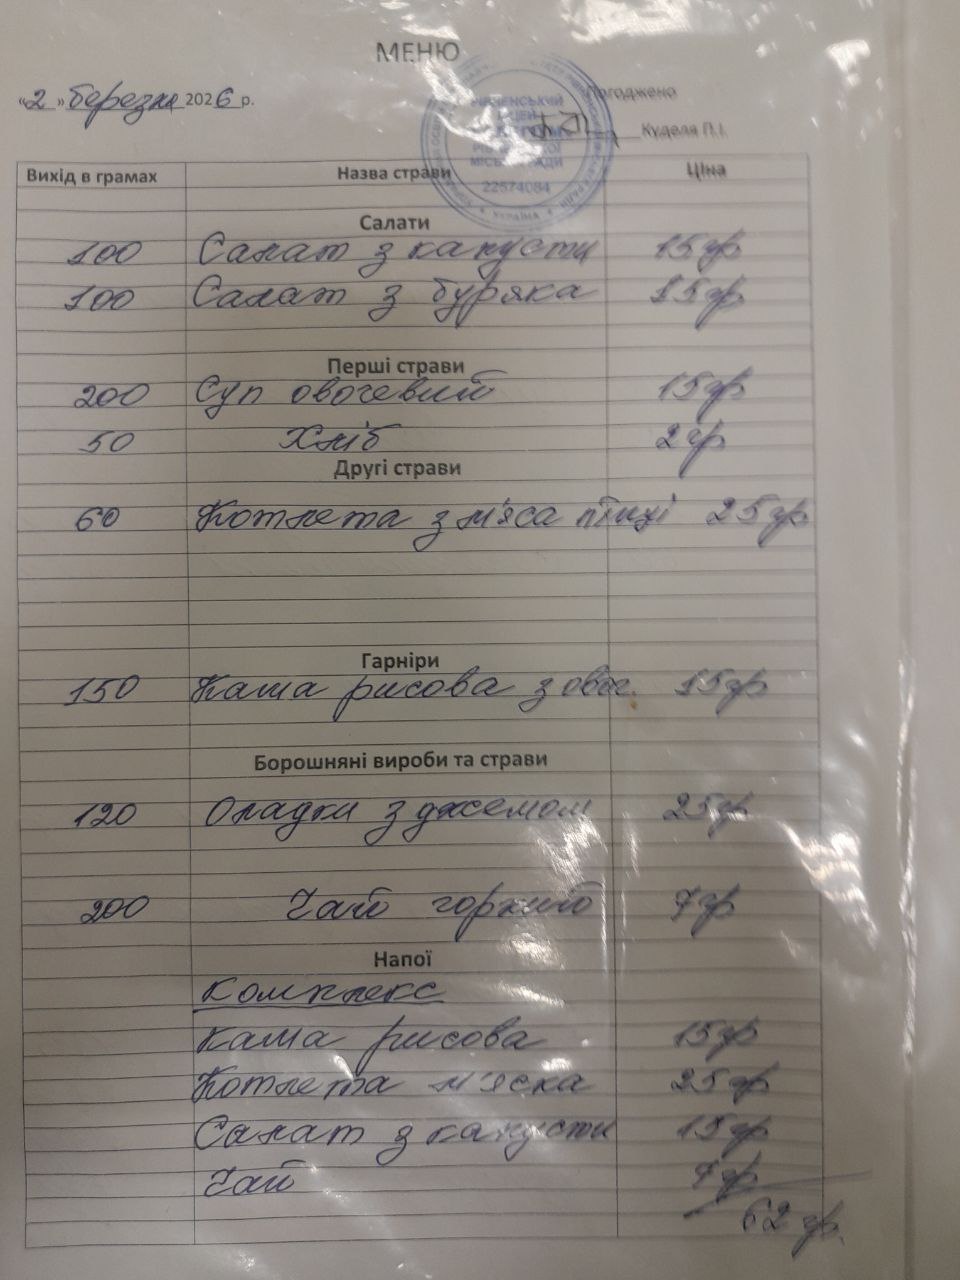 МЕНЮ
«2» березня 2026 р.
Погоджено
Куделя П.І.
РІВНЕНСЬКИЙ
ЛІЦЕЙ
МІСЬКОЇ РАДИ
22574084
УКРАЇНА
Вихід в грамах Назва страви Ціна
Салати
100 Салат з капусти 15 гр
100 Салат з буряка 15 гр
Перші страви
200 Суп овочевий 15 гр
50 Хліб 2 гр
Другі страви
60 Котлета з м'яса птиці 25 гр.
Гарніри
150 Каша рисова з овоч. 15 гр
Борошняні вироби та страви
120 Оладки з джемом 25 гр
200 Чай горкий 7 гр
Напої
Комплекс
Каша рисова 15 гр
Котлета м'яска 25 гр
Салат з капусти 15 гр
Чай 7 гр
62 гр.